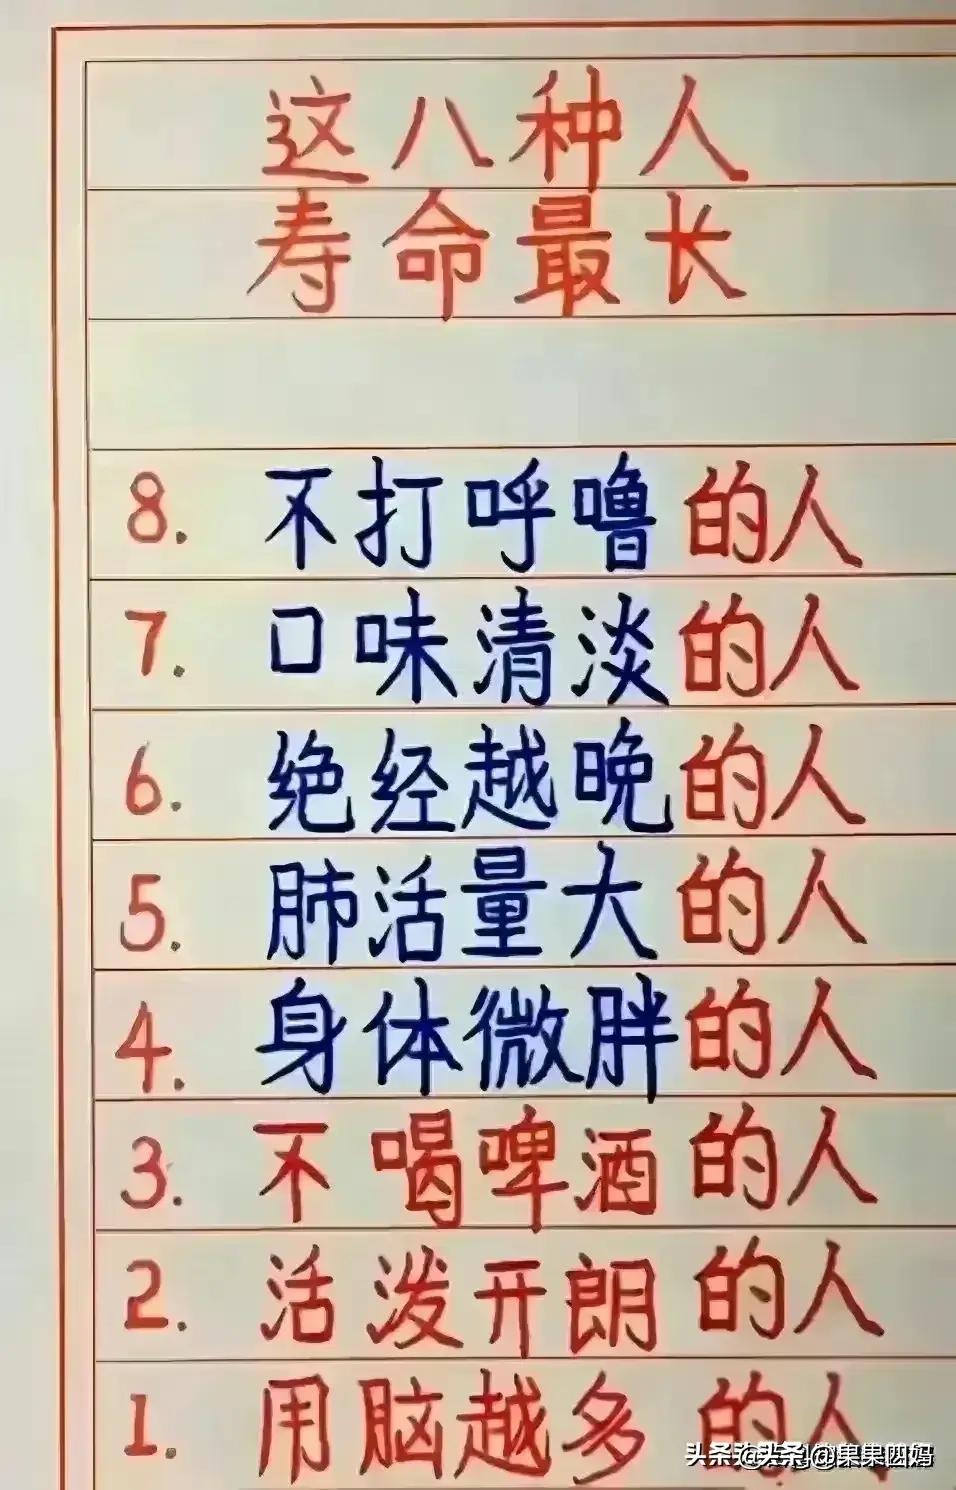 这八种人
寿命最长
8. 不打呼噜的人
7. 口味清淡的人
6. 绝经越晚的人
5. 肺活量大的人
4. 身体微胖的人
3. 不喝啤酒的人
2. 活泼开朗的人
1. 用脑越多的人
头条 @果果四妈